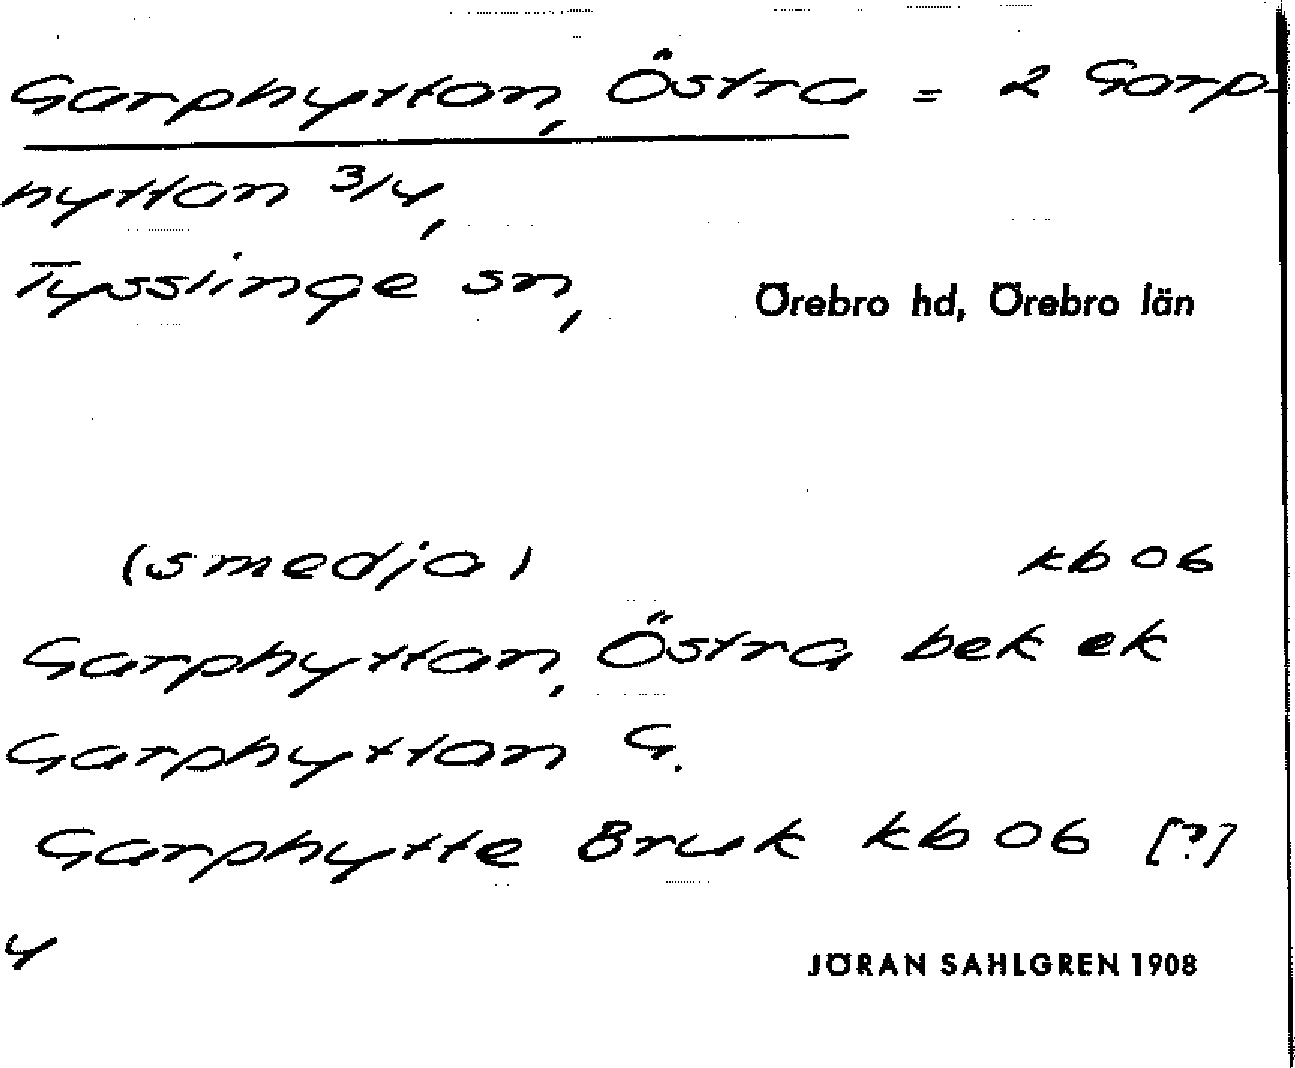 Garphyttan, Östra = 2 Garp-
hyttan 3/4,
Tysslinge sn, Örebro hd, Örebro län
(smedja) kb 06
Garphyttan, Östra bek ek
Garphyttan G.
Garphytte Bruk kb 06 [?]
4
JÖRAN SAHLGREN 1908